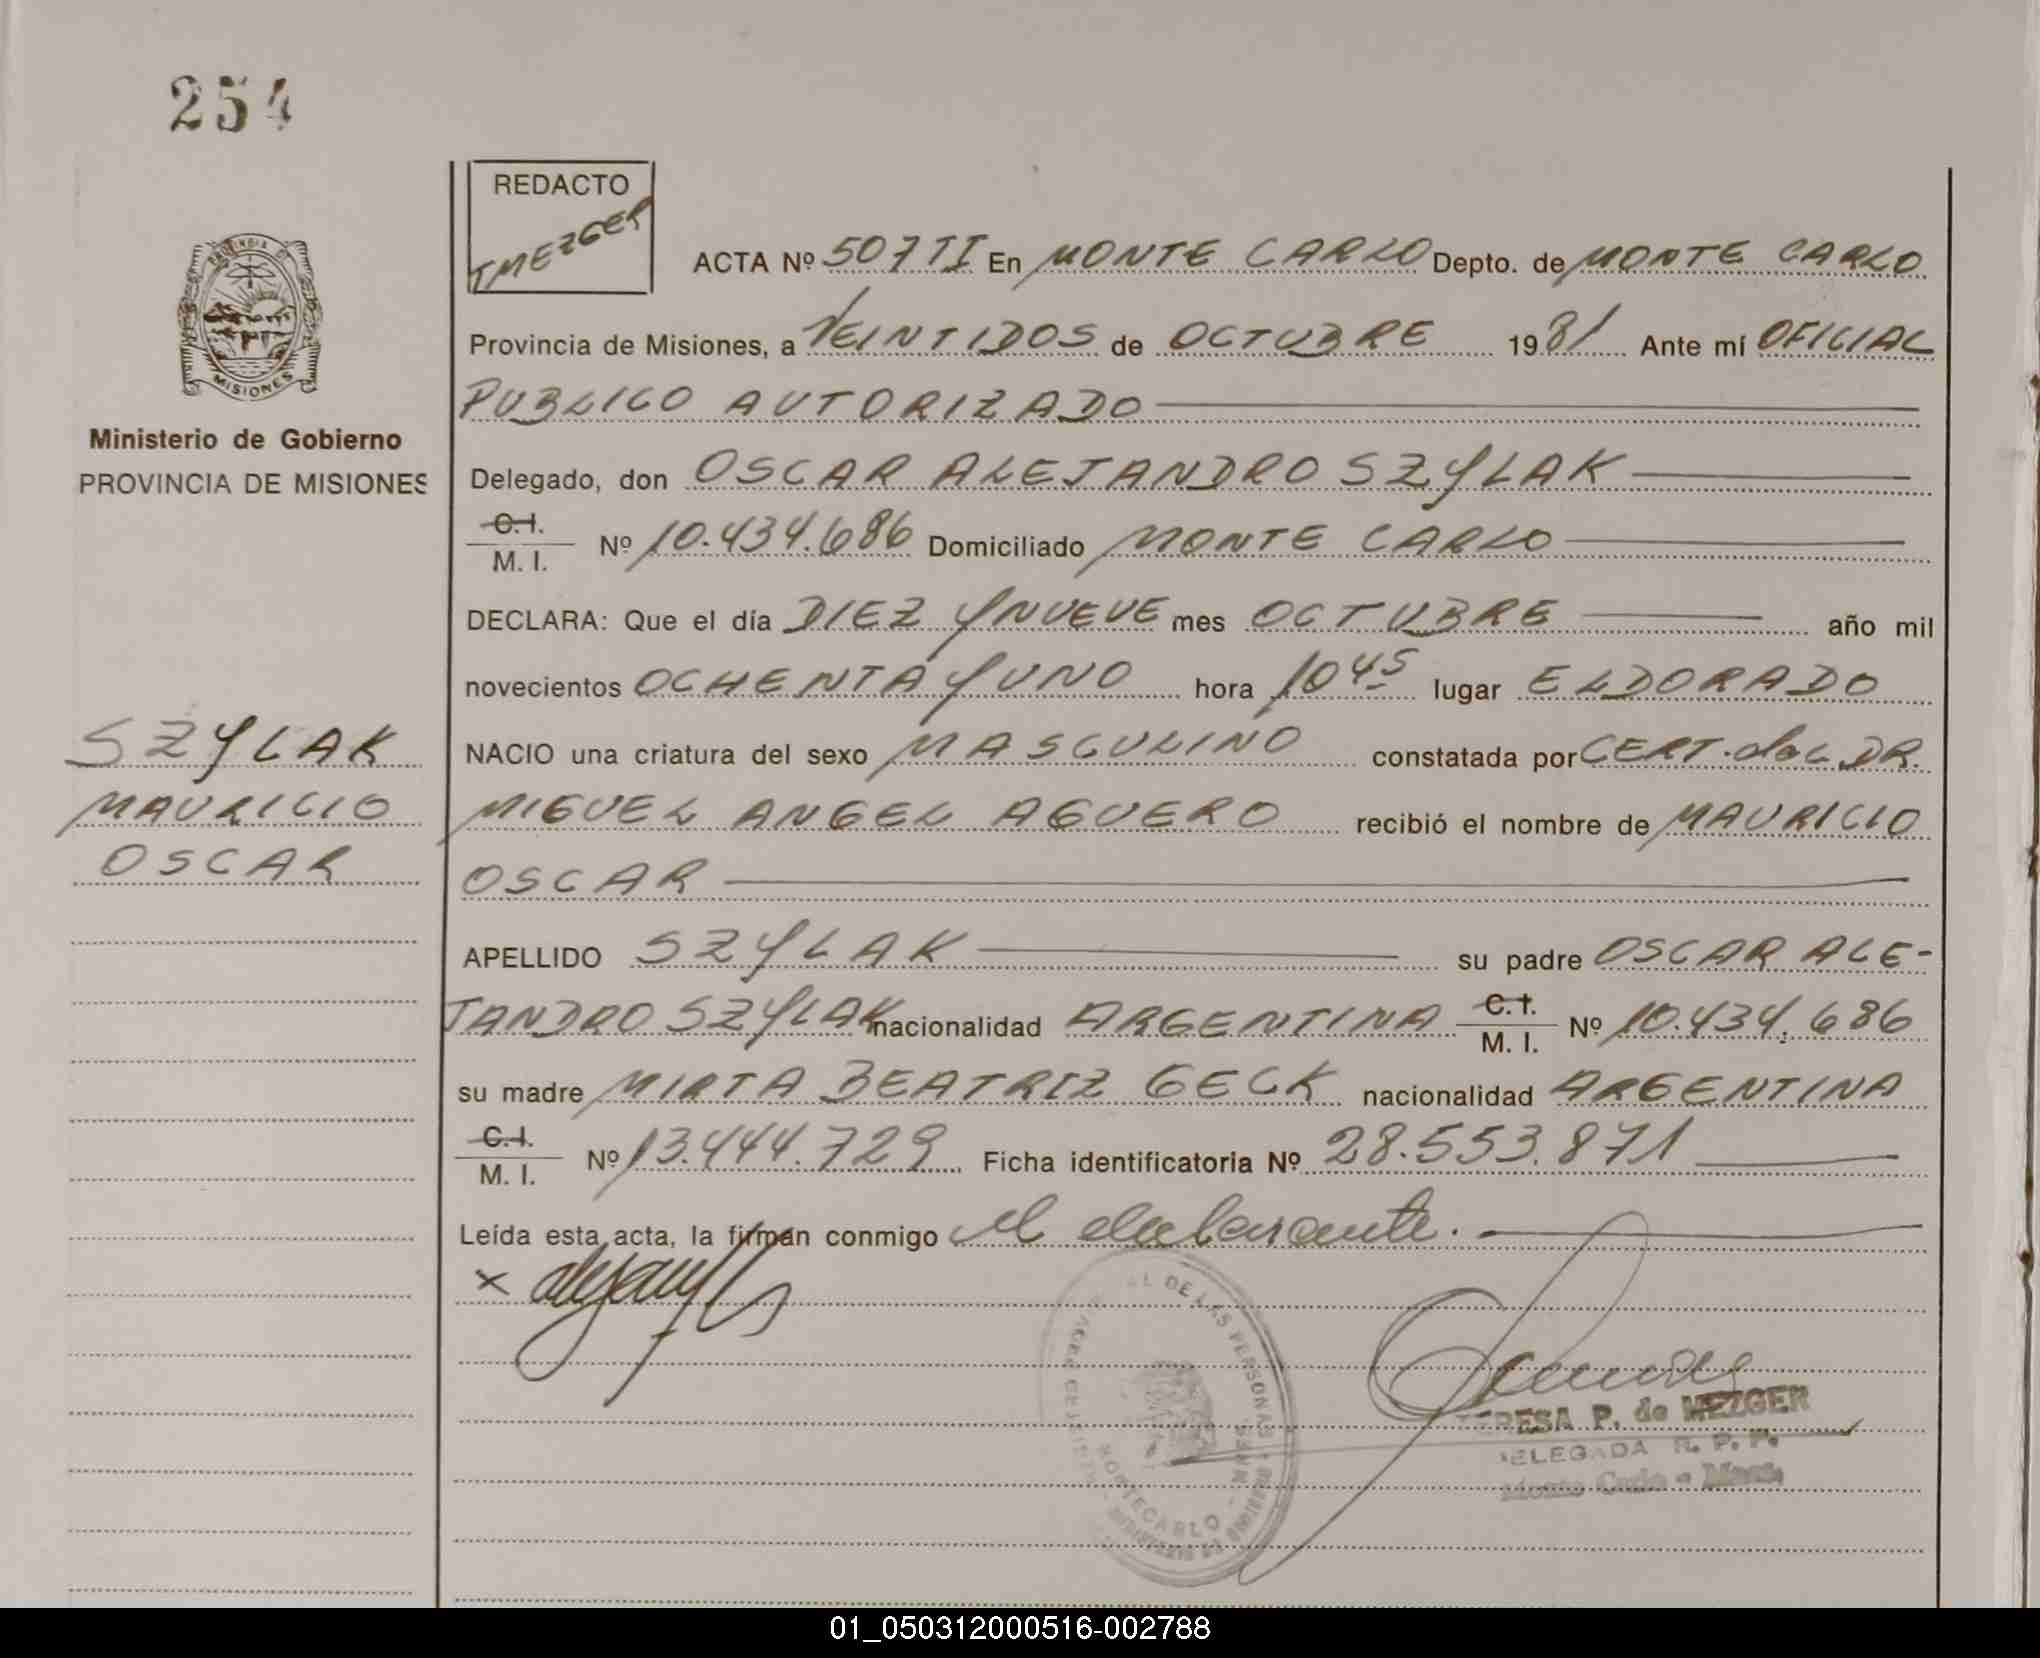 254
REDACTO
TMEZGER
PROVINCIA DE
MISIONES
Ministerio de Gobierno
PROVINCIA DE MISIONES
SZYLAK
MAURICIO
OSCAR
ACTA Nº 507 TI En MONTE CARLO Depto. de MONTE CARLO
Provincia de Misiones, a VEINTIDOS de OCTUBRE 1981 Ante mí OFICIAL
PUBLICO AUTORIZADO
Delegado, don OSCAR ALEJANDRO SZYLAK
C.I.
M. I. Nº 10.434.686 Domiciliado MONTE CARLO
DECLARA: Que el día DIEZ Y NUEVE mes OCTUBRE año mil
novecientos OCHENTA Y UNO hora 10 45 lugar ELDORADO
NACIO una criatura del sexo MASCULINO constatada por CERT. del DR.
MIGUEL ANGEL AGUERO recibió el nombre de MAURICIO
OSCAR
APELLIDO SZYLAK su padre OSCAR ALE-
JANDRO SZYLAK nacionalidad ARGENTINA C.I. M. I. Nº 10.434.686
su madre MIRTA BEATRIZ GECK nacionalidad ARGENTINA
C.I.
M. I. Nº 13.444.729 Ficha identificatoria Nº 28.553.871
Leída esta acta, la firman conmigo el declarante.
DE LAS PERSONAS
MONTECARLO
TERESA P. de MEZGER
DELEGADA R. P. P.
Monte Carlo - Mnes.
01_050312000516-002788